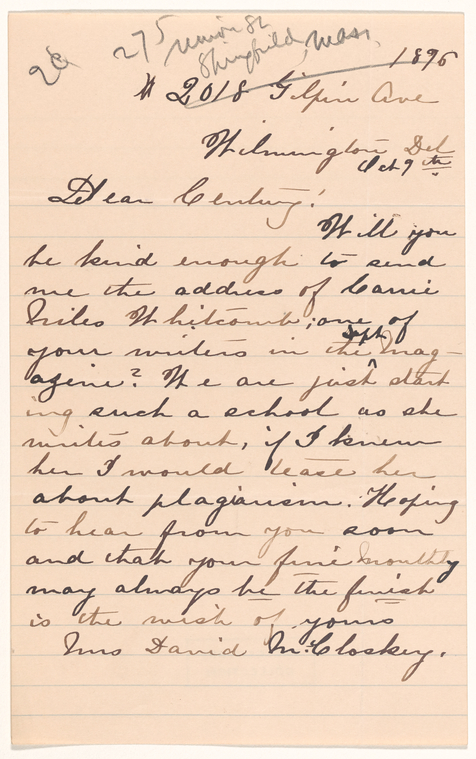 275 Union St
Springfield, Mass.
1896
# 2018 Gilpin Ave
Wilmington Del
Oct 9th
Dear Century!
Will you
be kind enough to send
me the address of Carrie
Niles Whitcomb; one of
your writers in the Sept Mag-
azine? We are just start
ing such a school as she
writes about, if I knew
her I would tease her
about plagiarism. Hoping
to hear from you soon
and that your fine monthly
may always be the finish
is the wish of yours
Mrs David McCloskey.